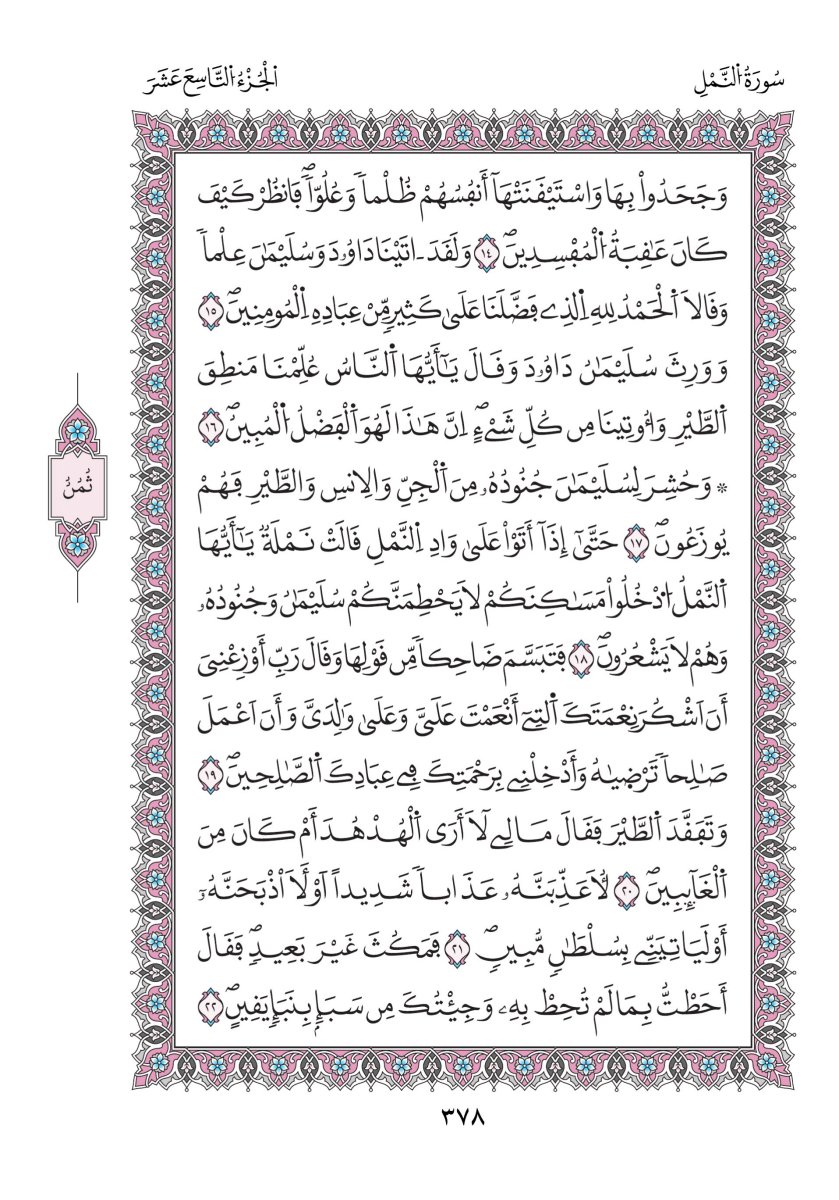 سُورَةُ اُ۬لنَّمْلِ
اُ۬لْجُزْءُ اُ۬لتَّاسِعَ عَشَرَ
وَجَحَدُواْ بِهَا وَاسْتَيْفَنَتْهَآ أَنفُسُهُمْ ظُلْماٗ وَعُلُوّاٗۖ فَانظُرْ كَيْفَ
كَانَ عَٰفِبَةُ اُ۬لْمُفْسِدِينَۖ ١٤ وَلَفَدَ اتَيْنَا دَاوُۥدَ وَسُلَيْمَٰنَ عِلْماٗ
وَفَالَا اَ۬لْحَمْدُ لِلهِ اِ۬لذِے فَضَّلَنَا عَلَىٰ كَثِيرٖ مِّنْ عِبَادِهِ اِ۬لْمُومِنِينَۖ ١٥
وَوَرِثَ سُلَيْمَٰنُ دَاوُۥدَ وَفَالَ يَٰٓأَيُّهَا اَ۬لنَّاسُ عُلِّمْنَا مَنطِقَ
اَ۬لطَّيْرِ وَأُوتِينَا مِن كُلِّ شَےْءٍۖ اِنَّ هَٰذَا لَهُوَ اَ۬لْفَضْلُ اُ۬لْمُبِينُۖ ١٦
* وَحُشِرَ لِسُلَيْمَٰنَ جُنُودُهُۥ مِنَ اَ۬لْجِنِّ وَالِانسِ وَالطَّيْرِ فَهُمْ
يُوزَعُونَۖ ١٧ حَتَّىٰٓ إِذَآ أَتَوْاْ عَلَىٰ وَادِ اِ۬لنَّمْلِ فَالَتْ نَمْلَةٞ يَٰٓأَيُّهَا
اَ۬لنَّمْلُ اُ۟دْخُلُواْ مَسَٰكِنَكُمْ لَا يَحْطِمَنَّكُمْ سُلَيْمَٰنُ وَجُنُودُهُۥ
وَهُمْ لَا يَشْعُرُونَۖ ١٨ فَتَبَسَّمَ ضَاحِكاٗ مِّن فَوْلِهَا وَفَالَ رَبِّ أَوْزِعْنِىَ
أَنَ اَشْكُرَ نِعْمَتَكَ اَ۬لتِےٓ أَنْعَمْتَ عَلَيَّ وَعَلَىٰ وَٰلِدَيَّ وَأَنَ اَعْمَلَ
صَٰلِحاٗ تَرْضِيٰهُ وَأَدْخِلْنِے بِرَحْمَتِكَ فِے عِبَادِكَ اَ۬لصَّٰلِحِينَۖ ١٩
وَتَفَفَّدَ اَ۬لطَّيْرَ فَفَالَ مَا لِے لَآ أَرَى اَ۬لْهُدْهُدَ أَمْ كَانَ مِنَ
اَ۬لْغَآئِبِينَۖ ٢٠ لَأُعَذِّبَنَّهُۥ عَذَاباٗ شَدِيداً اَوْ لَأَاْذْبَحَنَّهُۥٓ
أَوْ لَيَاتِيَنِّے بِسُلْطَٰنٖ مُّبِينٖۖ ٢١ فَمَكُثَ غَيْرَ بَعِيدٖۖ فَفَالَ
أَحَطتُّ بِمَا لَمْ تُحِطْ بِهِۦ وَجِئْتُكَ مِن سَبَإِۢ بِنَبَإٖ يَفِينٍۖ ٢٢
ثُمُنُ
٣٧٨